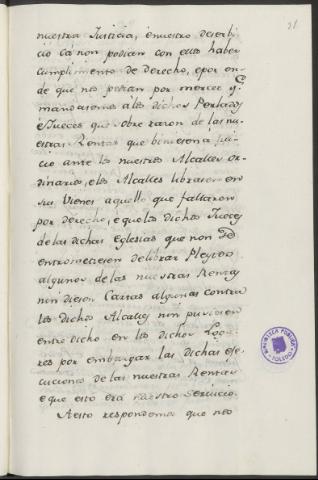 31
nuestra Justicia, é nuestro deserbi-
cio ca non podian con ellos haber
cumplimiento de derecho, é por on-
de que nos pedian por merced q.e
mandasemos á los dichos Perlados
é Jueces que sobre razon de las nu-
estras Rentas que veniesen á jui-
cio ante los nuestros Alcalles or-
dinarios, é los Alcalles librasen en
sus vienes aquello que fallaren
por derecho, é que los dichos Jueces
de las dichas Eglesias que non se
entrometiesen de librar Pleytos
algunos de las nuestras Rentas
nin diesen Cartas algunas contra
los dichos Alcalles nin pusiesen
entredicho en los dichos Loga-
res por embargar las dichas ese-
cuciones de las nuestras Rentas
e que esto era nuestro servicio.
A esto respondemos que nos
BIBLIOTECA PUBLICA
TOLEDO